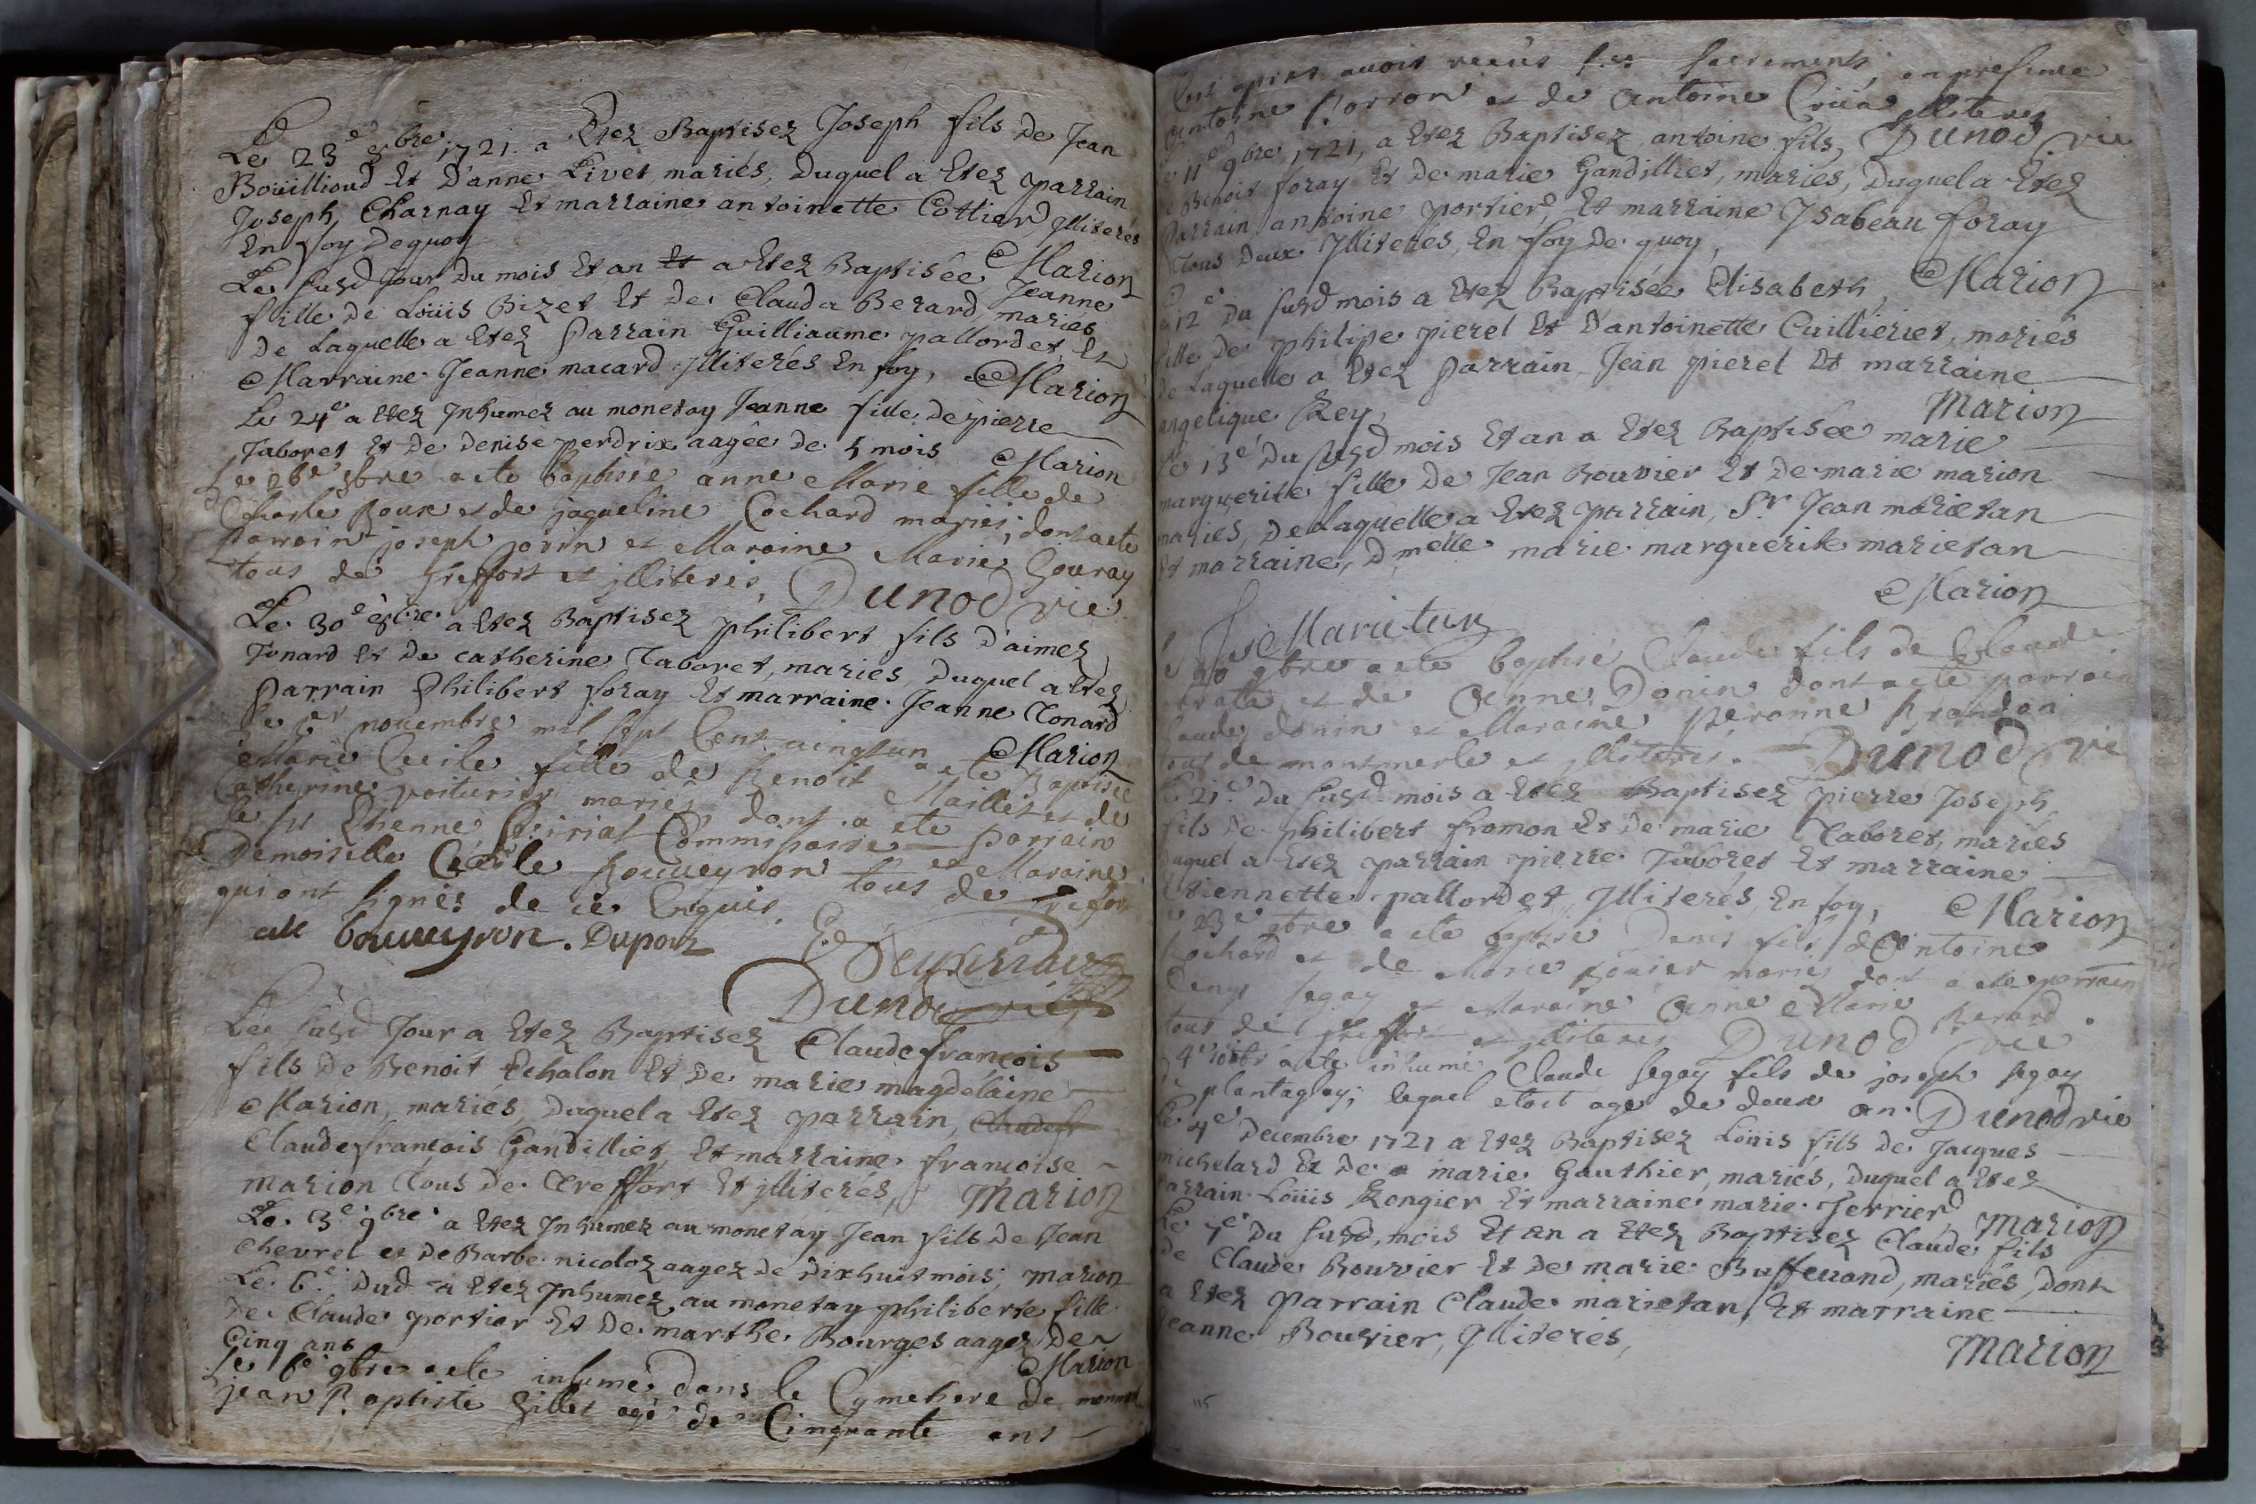 Le 23e 8bre 1721. a Etez Baptisez Joseph fils de Jean
Boüillioud Et D'anne Livet mariés, Duquel a Etez parrain
Joseph Charnay Et marraine antoinette Cottier Illiterés
En foy de quoy Marion
Le susd Jour du mois Et an a Etez Baptisée Jeanne
fille de Loüis Bizet Et de Clauda Berard mariés
De Laquelle a Etez Parrain Guilliaume pallordet Et
Marraine Jeanne macard Illiterés En foy, Marion
Le 24e a Etez Inhumez au monetay Jeanne fille de pierre
Taboret Et de Denise perdrix aagée de 5 mois Marion
Le 26e 8bre a eté Baptisée anne Marie fille de
Charle Roux et de jaqueline Cochard mariés; dont a eté
parrain joseph jovin et Maraine Marie Gouray
tous de Treffort et illiterés, Dunod vic.
Le 30e 8bre a Etez Baptisez philibert fils d'aimez
Tonard Et de catherine Taboret, mariés, Duquel a Etez
Parrain Philibert foray Et marraine Jeanne Tonard
Marion
Le 1er novembre mil sept Cent vingt un a eté Baptisée
Marie Cecile fille de Benoit Maillet et de
Catherine voiturier mariés dont a eté parrain
le sr Etienne Commissaire et Maraine
Demoiselle Cécile Bouveyron tous de Trefort
qui ont signés de ce Enquis.
cile bouveyron. Dupont
Dunod vic
Le susd Jour a Etez Baptisez Claude françois
fils de Benoit Echalon Et de marie magdelaine
Marion, mariés, Duquel a Etez parrain, Claude fr
Claude françois Gandilliet, Et marraine françoise
marion tous de Treffort Et illiterés, Marion
Le 3e 9bre a Etez Inhumez au monetay Jean fils de Jean
Chevrel et de Barbe nicoloz aagez de dixhuit mois, marion
Le 6e Dud a Etez Inhumez au monetay philiberte fille
de Claude portier Et de marthe Bourges aagez De
Cinq ans Marion
Le 6e 9bre a eté inhumé dans le Cymetiere de
jean Baptiste Gillet agé de Cinquante ans
apres avoir receus ses sacrements, en presence
antoine Borron et de antoine illiterés
Dunod vic
11e 9bre 1721, a Etez Baptisez antoine fils
Benoit foray Et de marie Gandilliet, mariés, Duquel a Etez
Parrain antoine portier, Et marraine Isabeau foray
Tous Deux Illiterés, En foy de quoy,
Marion
12e du susd mois a Etez Baptisée Elisabeth
fille de philipe pierel Et D'antoinette Cuillieriet, mariés
De Laquelle a Etez Parrain Jean pierel Et marraine
angelique Rey, Marion
Le 13e du susd mois Et an a Etez Baptisée marie
marguerite fille de Jean Bouvier Et de marie marion
mariés, De Laquelle a Etez parrain, Sr Jean marietan
Et marraine, Dmelle marie marguerite marietan
Marion
Marietan
Le 20 9bre a eté baptisé Claude fils de Claude
et de Anne Donin dont a eté parrain
Claude donin et Maraine Peronne
tous de montmerle et illiterés. Dunod vic
Le 21e du susd mois a Etez Baptisez pierre Joseph,
fils de philibert fromon Et de marie Taboret, mariés
Duquel a Etez parrain pierre Taboret Et marraine
Etiennette pallordet, Illiterés, En foy, Marion
Le 23e 9bre a eté baptisé Denis fils d'Antoine
Cochard et de Marie mariés dont a eté parrain
Denys segay et Maraine Anne Marie Berard
tous de Treffort et illiterés Dunod vic
Le 4e a eté inhumé Claude segay fils de joseph segay
de plantaglay; lequel etoit agé de deux an. Dunod vic
Le 4e Decembre 1721 a Etez Baptisez Loüis fils de Jacques
michelard Et de marie Gauthier, mariés, Duquel a Etez
Parrain Loüis Rongier Et marraine marie Terrier
Marion
Le 7e du susd, mois Et an a Etez Baptisez Claude fils
de Claude Bouvier Et de marie Buffenand, mariés, Dont
a Etez parrain Claude marietan, Et marraine
Jeanne Bouvier, Illiterés,
Marion
115